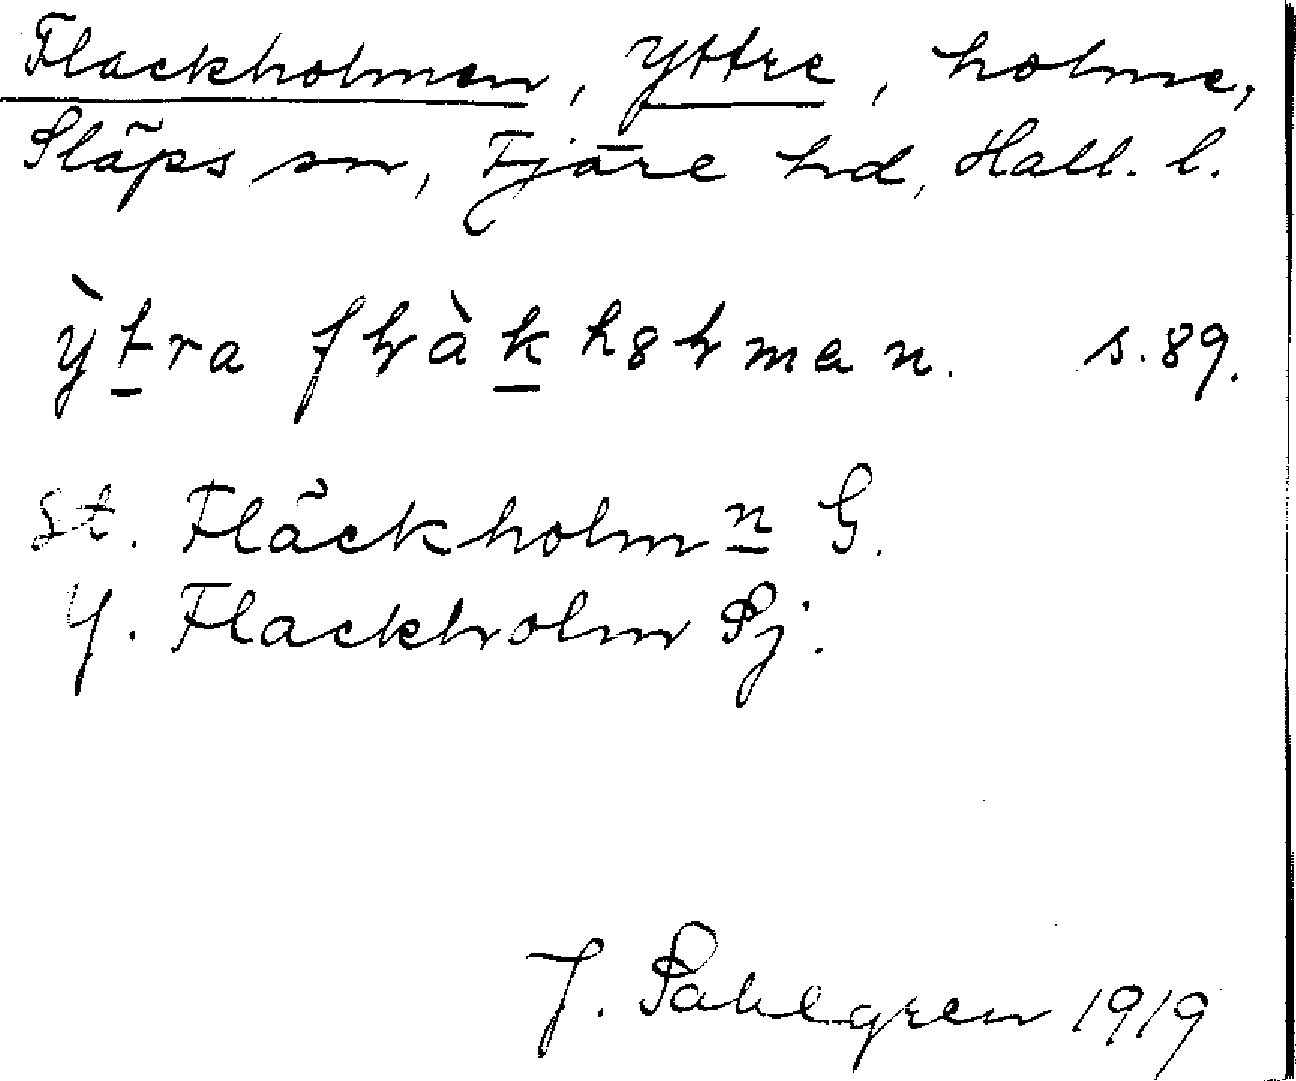 Flackholmen, Yttre, holme,
Släps sn, Fjäre hd, Hall. l.
s. 89.
St. Fläckholmn G.
Y. Flackholm Sj.
J. Sahlgren 1919